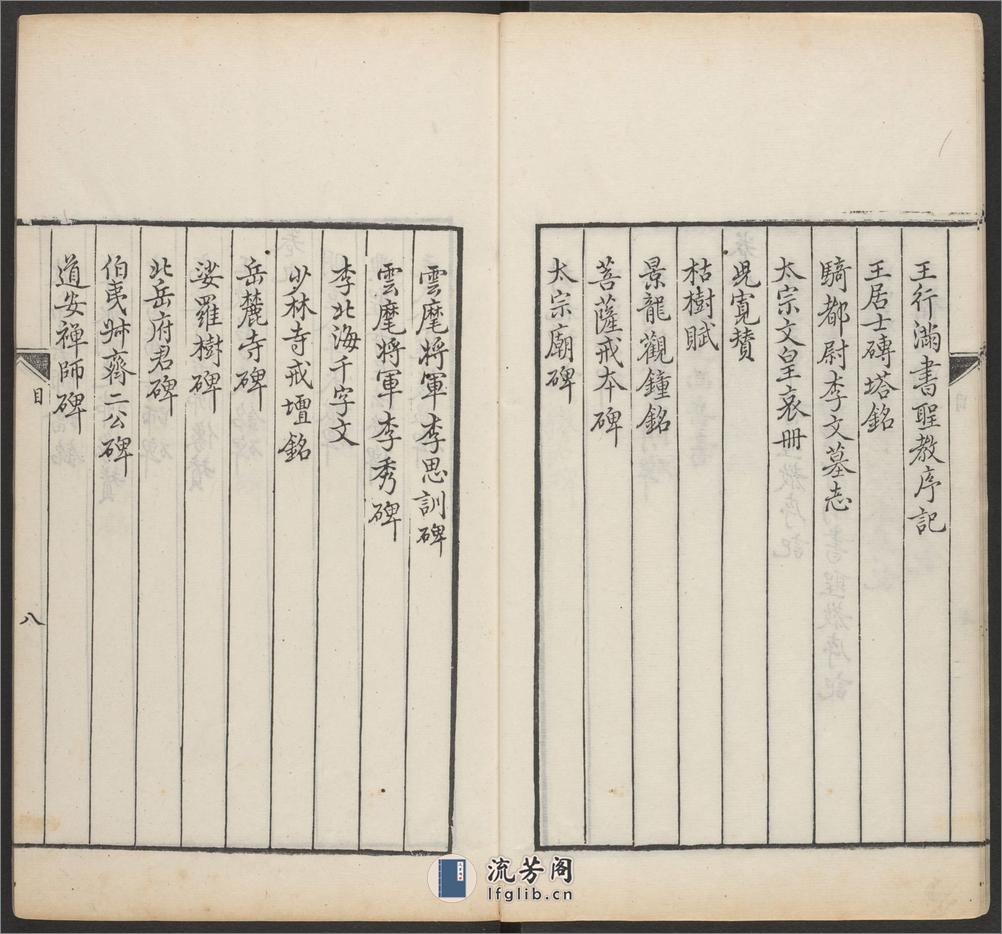 王行滿書聖教序記
王居士磚塔銘
騎都尉李文墓志
太宗文皇哀冊
兒寬贊
枯樹賦
景龍觀鐘銘
菩薩戒本碑
太宗廟碑
雲麾将軍李思訓碑
雲麾将軍李秀碑
李北海千字文
少林寺戒壇銘
岳麓寺碑
娑羅樹碑
北岳府君碑
伯夷叔齊二公碑
道安禅師碑
目
八
流芳阁
lfglib.cn